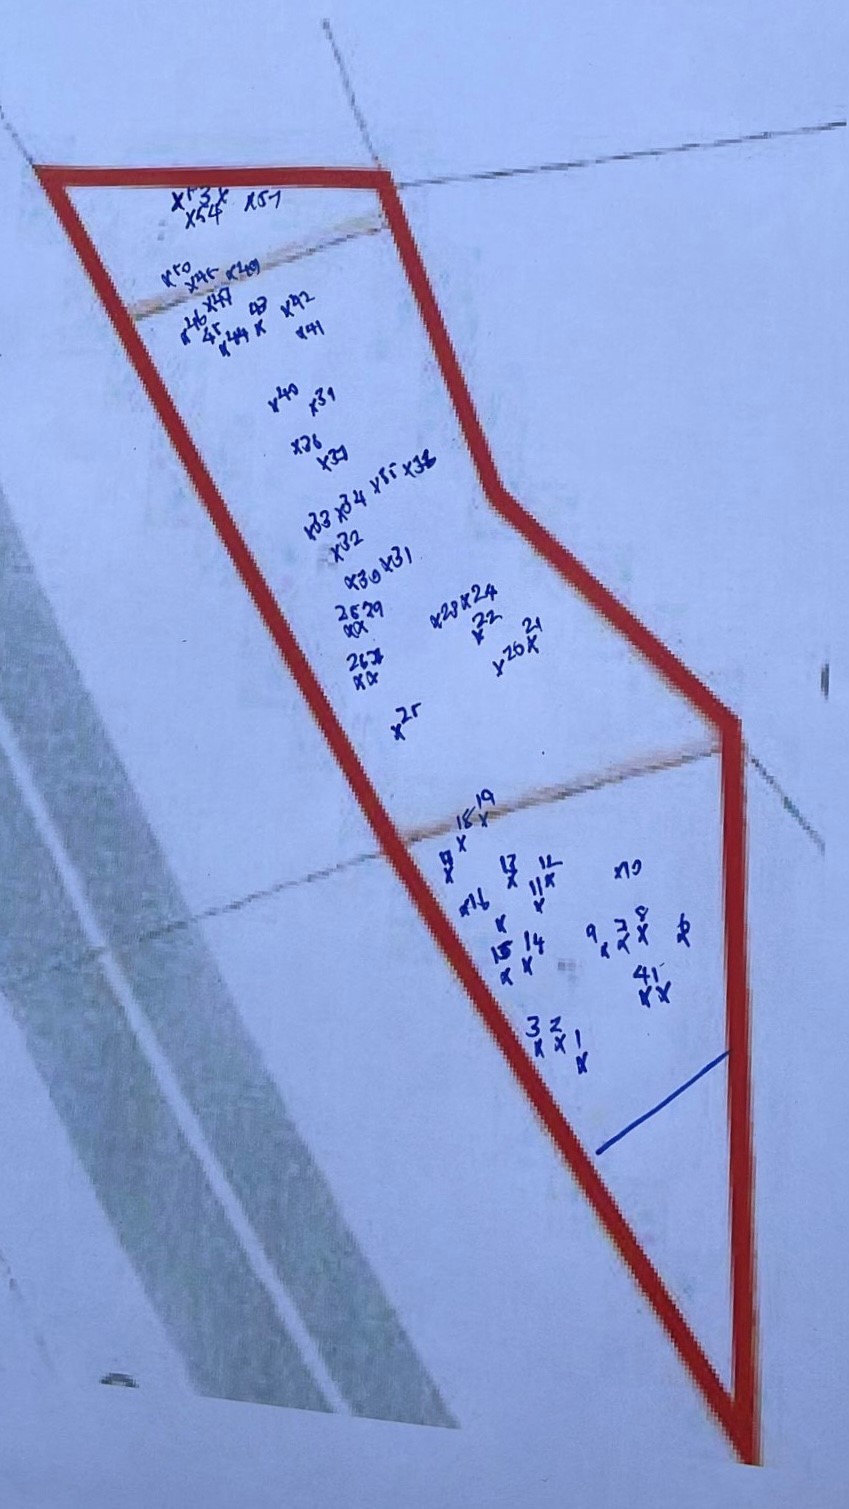 x53x
x54
x51
x50
x45
x49
x46
x47
48
x42
45
x44
x
x41
x40
x39
x36
x37
x33
x34
x35
x38
x32
x30
x31
28 29
xx
x23
x24
22
x
21
x20
x
26
xx
x25
19
18
x
x
x
13
12
x
x
x10
11
x
x16
x
15
14
x
x
9
x
7
x
8
x
6
x
4
xx
3
2
1
x
x
x